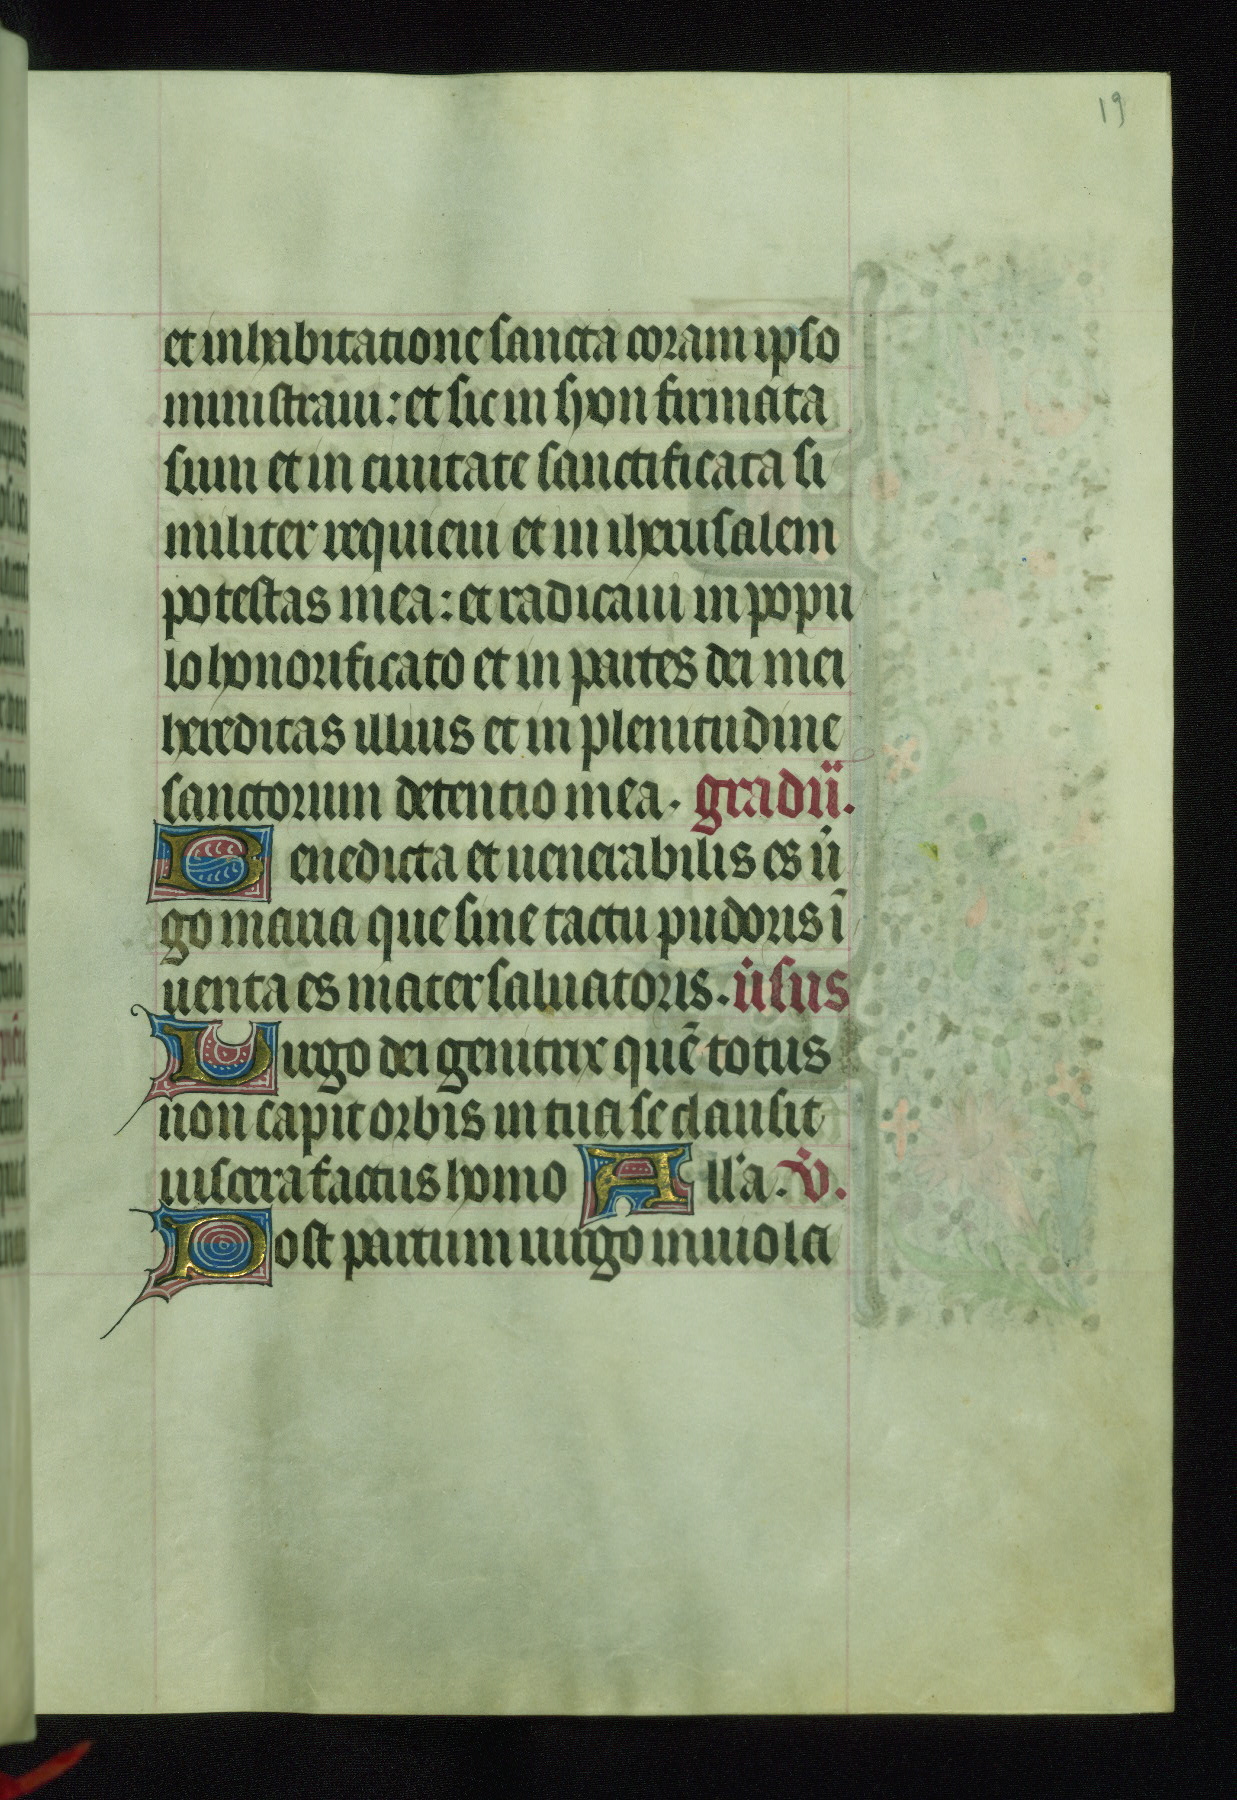 19
et in habitatione sancta coram ipso
ministraui: et sic in syon firmata
sum et in ciuitate sanctificata si
militer requieui et in iherusalem
potestas mea: et radicaui in popu
lo honorificato et in partes dei mei
hereditas illius et in plenitudine
sanctorum detentio mea. gradu͞.
Benedicta et uenerabilis es u͛
go maria que sine tactu pudoris ī
uenta es mater saluatoris. u͛sus
Uirgo dei genitrix quē totus
non capit orbis in tua se clausit
uiscera factus homo All'a. V͛.
Post partum uirgo inuiola